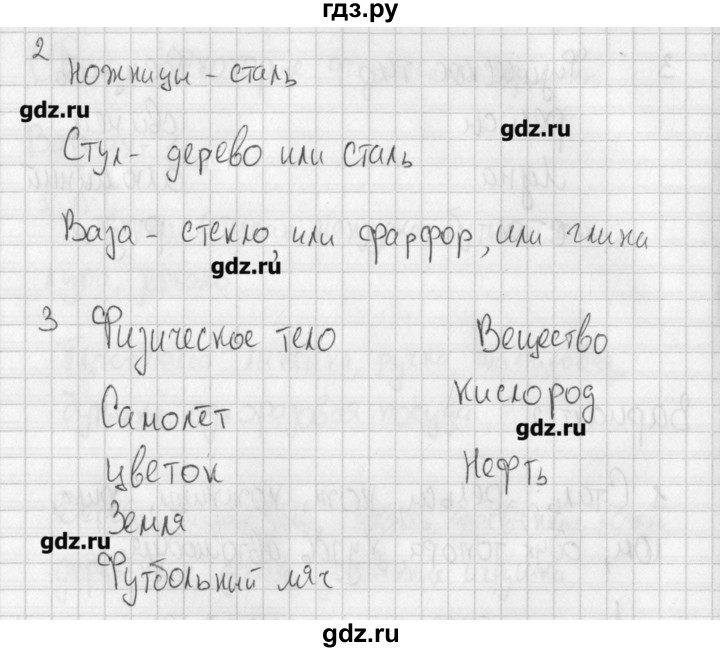 гдз.ру
2
ножницы - сталь
gdz.ru
gdz.ru
Стул - дерево или сталь
Ваза - стекло, или фарфор, или глина
gdz.ru
3 Физическое тело Вещество
Самолёт кислород
gdz.ru
цветок Нефть
Земля
gdz.ru
Футбольный мяч
gdz.ru